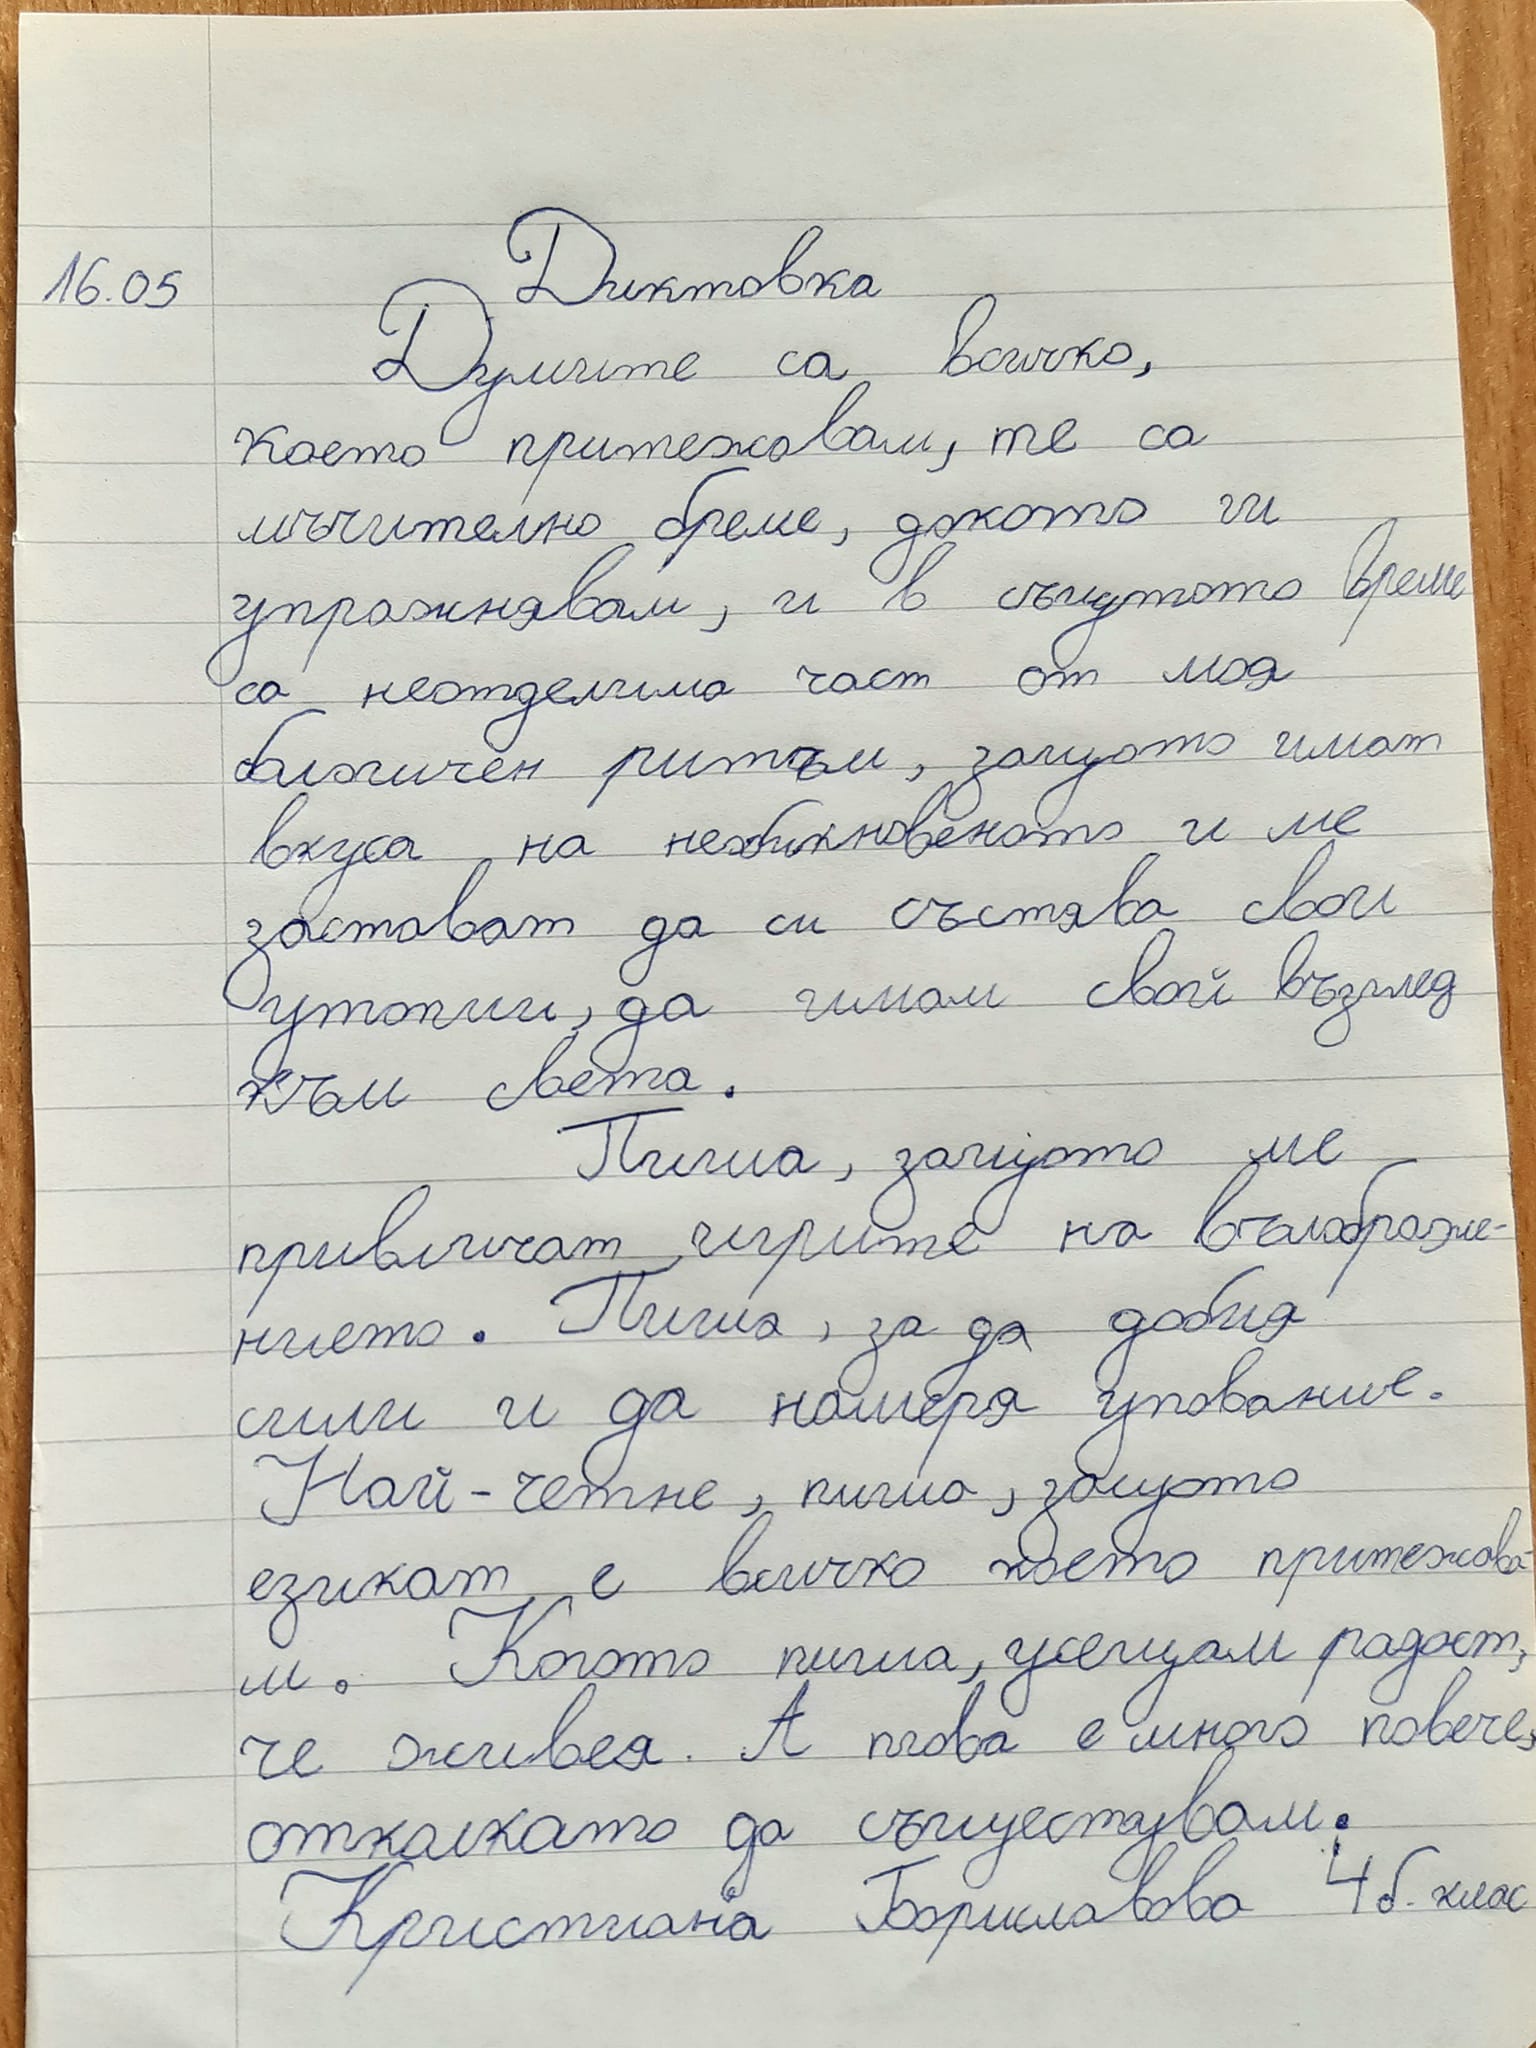 16.05
Диктовка
Думите са всичко,
което притежавам, те са
мъчително бреме, докато ги
упражнявам, и в същтото време
са неотделима част от моя
билогичен ритъм, защото имат
вкуса на необикновеното и ме
застават да си състява свои
утопии, да имам свой възглед
към света.
Пиша, защото ме
привличат игрите на въображе-
нието. Пиша, за да добия
сили и да намеря упование.
Най-четне, пиша, защото
езикат е всичко което притежава-
м. Когато пиша, усещам радост,
че живея. А това е много повече,
отколкато да съществувам.
Кристиана Бориславова 4 б. клас